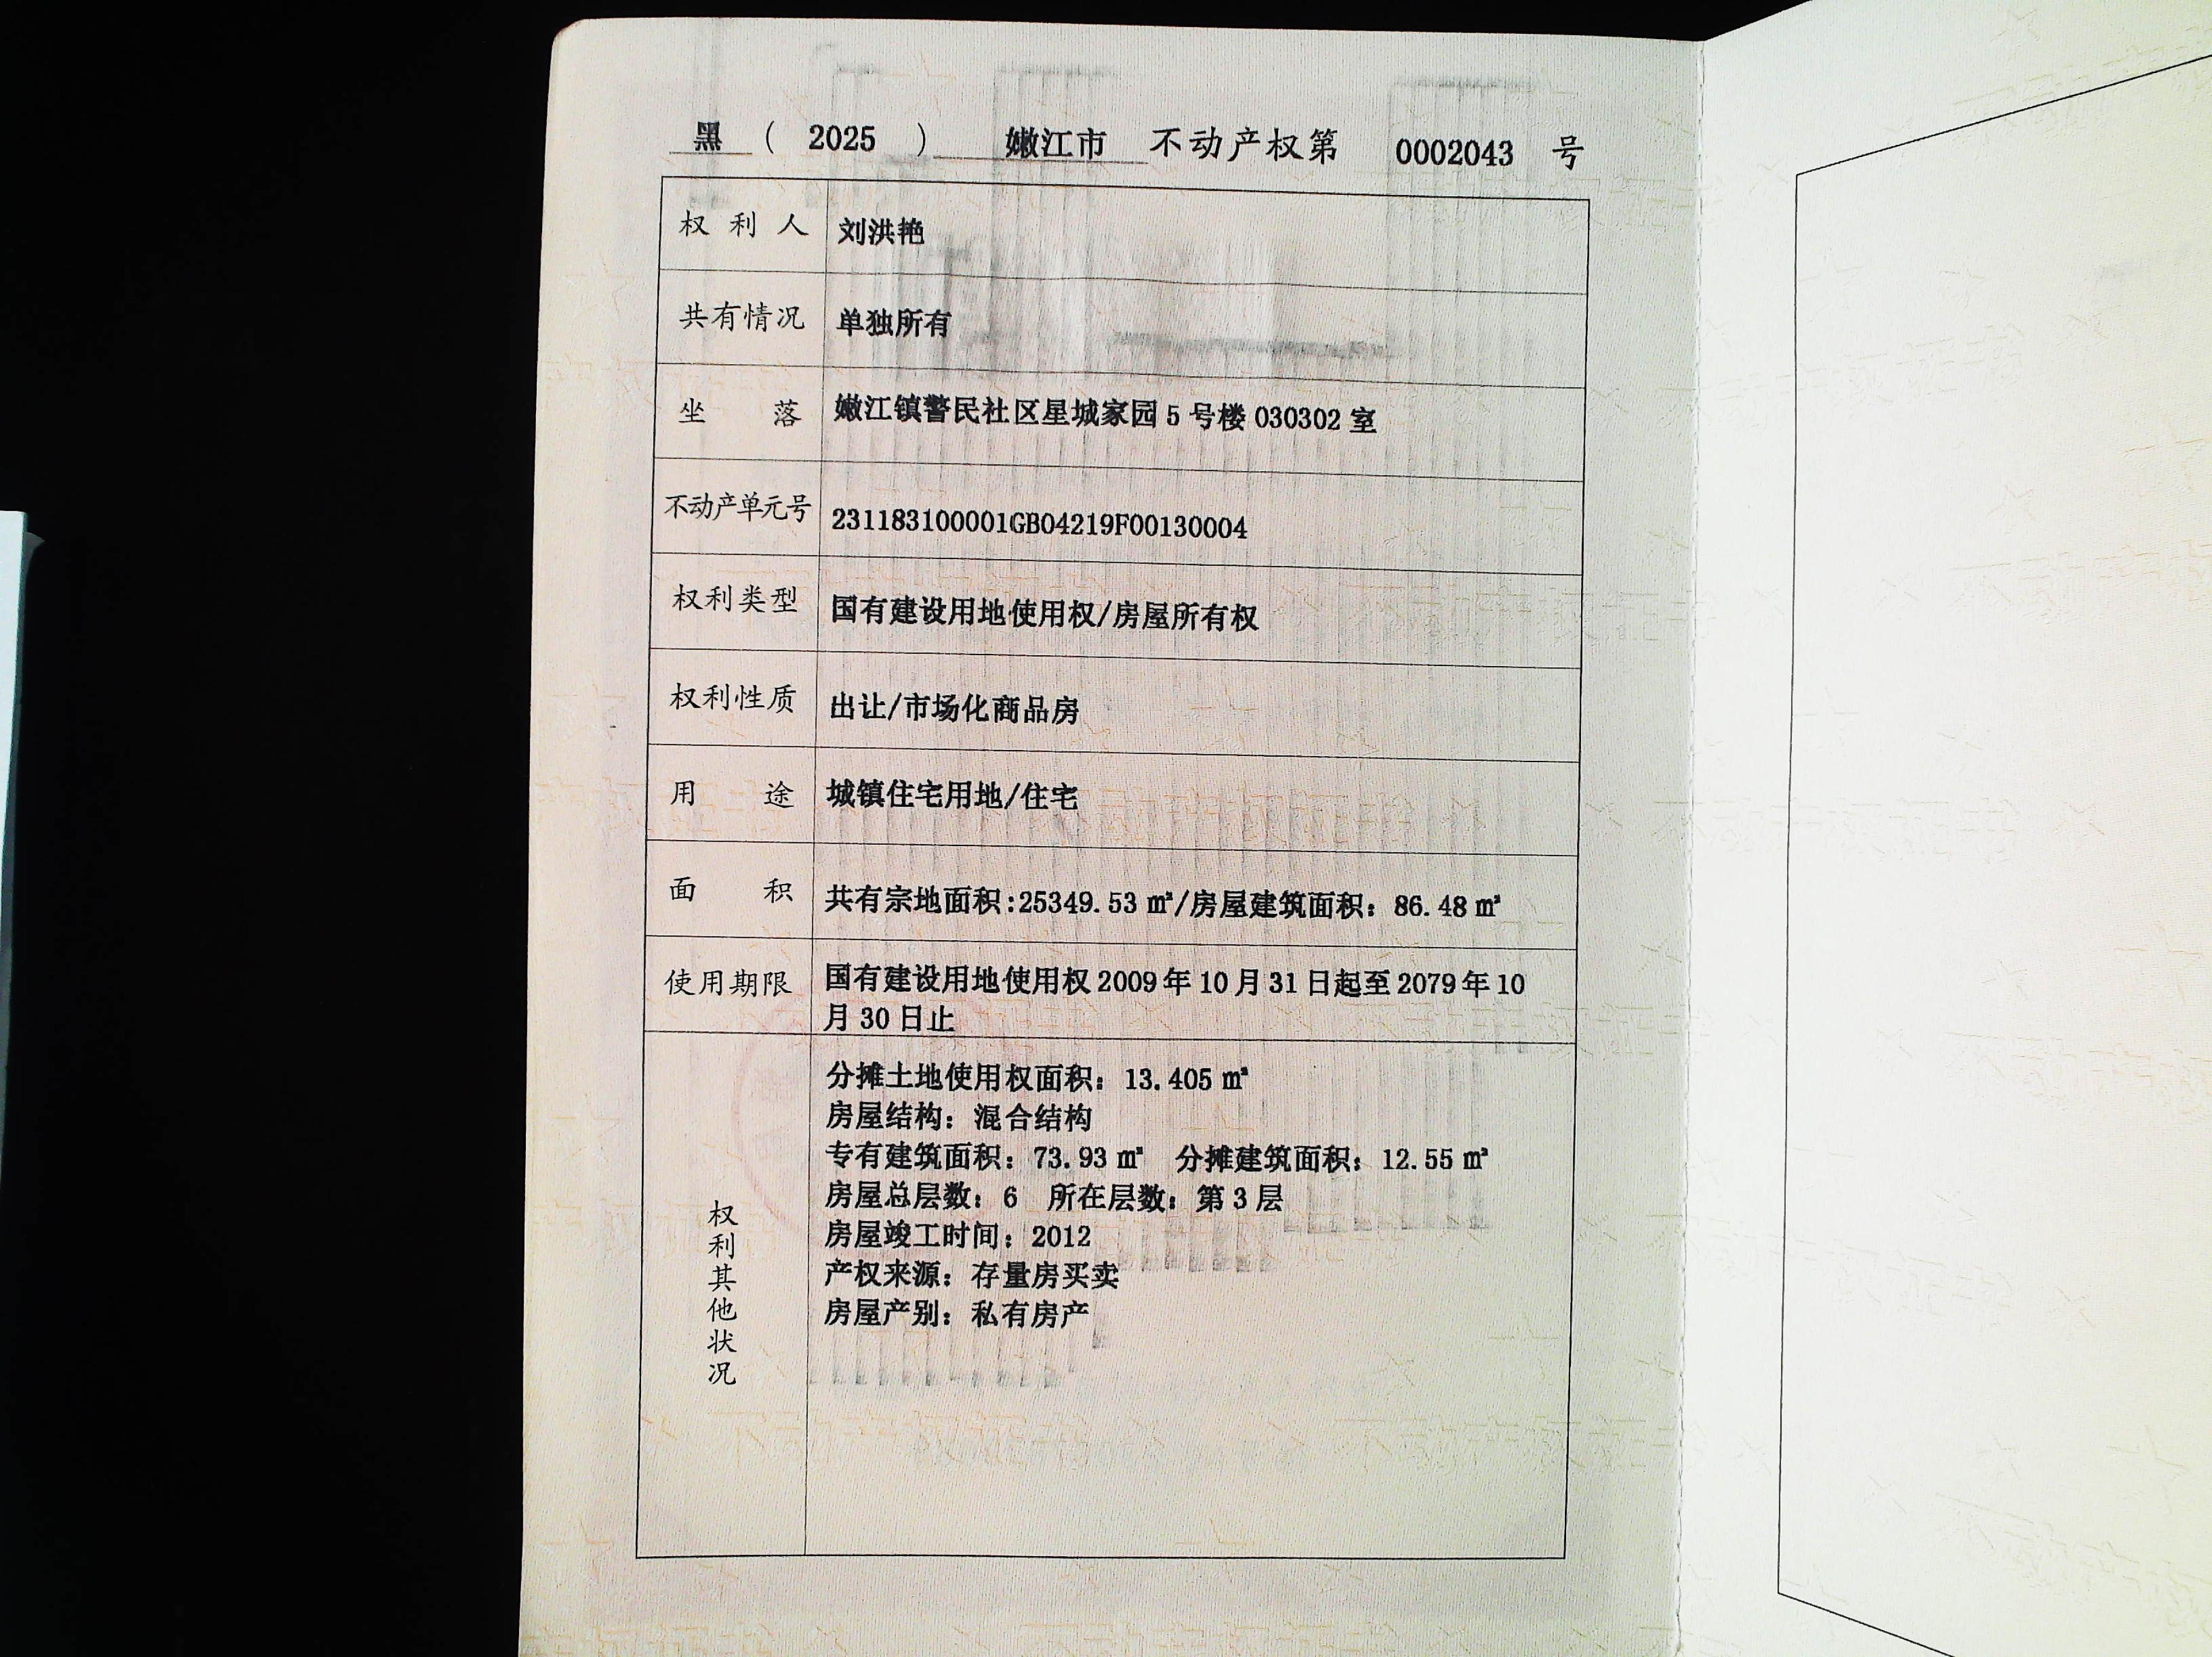 黑 ( 2025 ) 嫩江市 不动产权第 0002043 号
权利人 刘洪艳
共有情况 单独所有
坐落 嫩江镇警民社区星城家园 5 号楼 030302 室
不动产单元号 231183100001GB04219F00130004
权利类型 国有建设用地使用权/房屋所有权
权利性质 出让/市场化商品房
用途 城镇住宅用地/住宅
面积 共有宗地面积:25349.53 ㎡/房屋建筑面积：86.48 ㎡
使用期限 国有建设用地使用权 2009 年 10 月 31 日起至 2079 年 10
月 30 日止
权利其他状况
分摊土地使用权面积：13.405 ㎡
房屋结构：混合结构
专有建筑面积：73.93 ㎡ 分摊建筑面积：12.55 ㎡
房屋总层数：6 所在层数：第 3 层
房屋竣工时间：2012
产权来源：存量房买卖
房屋产别：私有房产